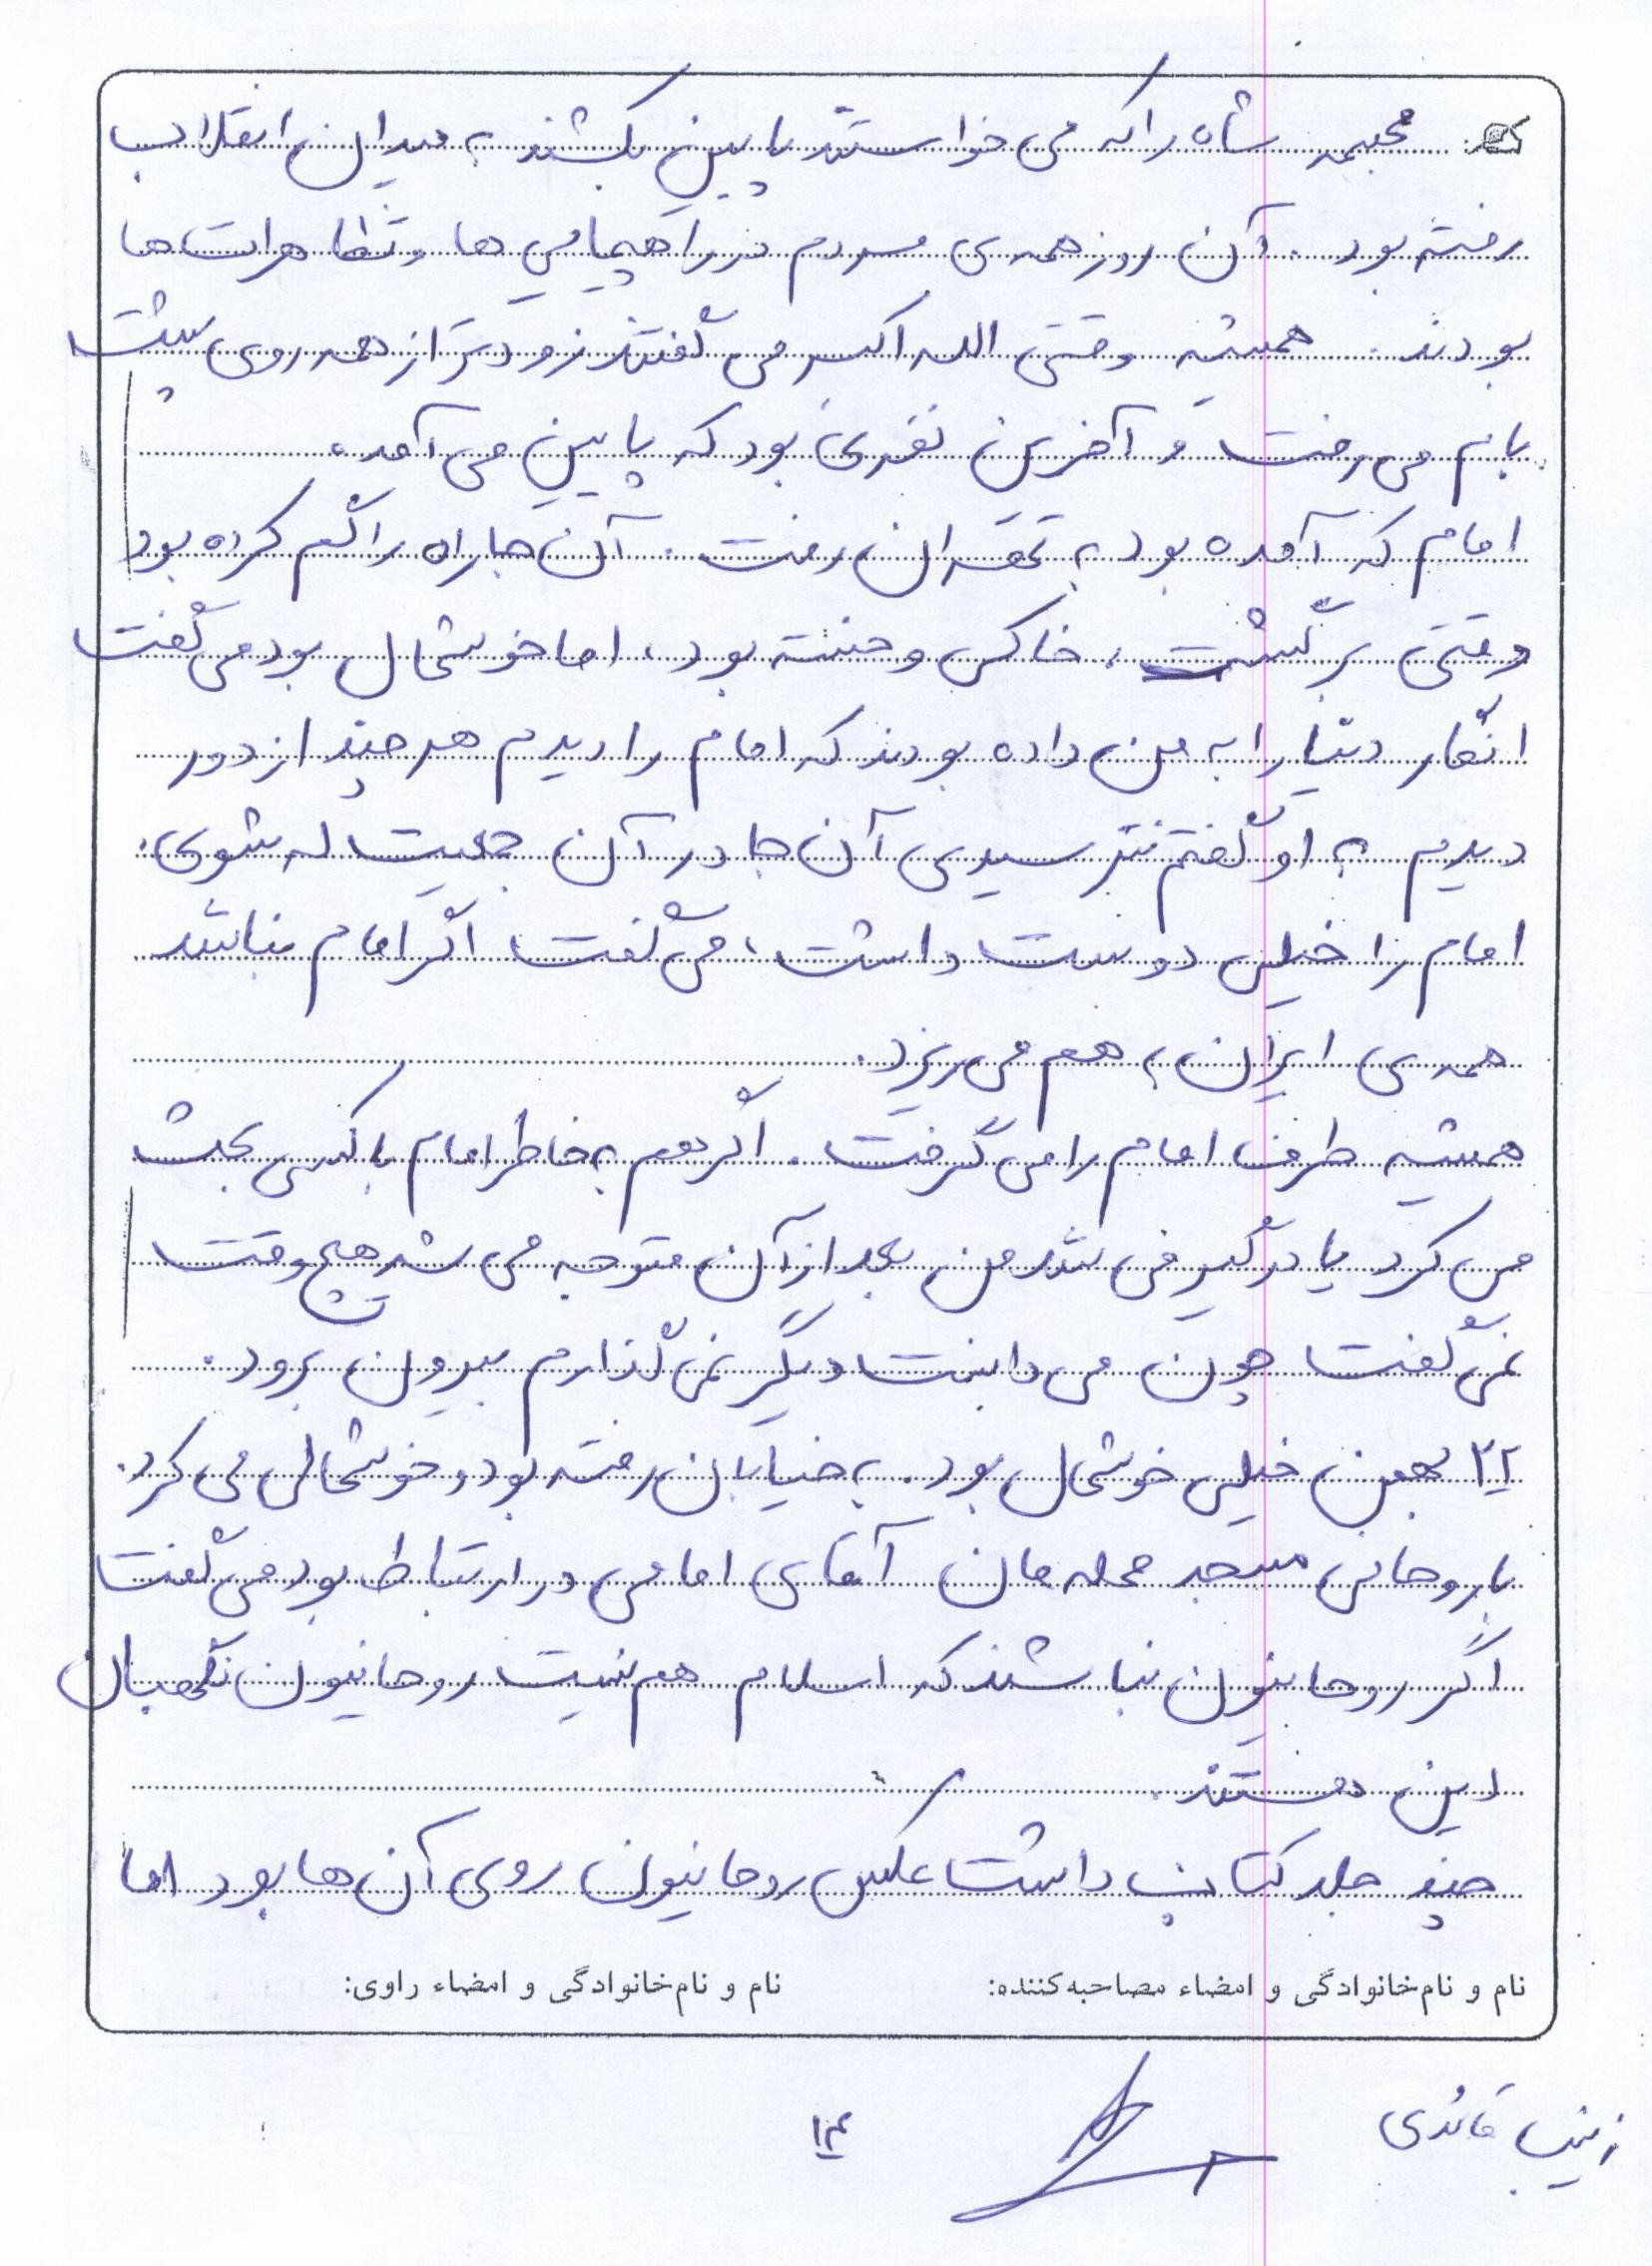 مجسمه شاه را که می خواستند پایین بکشند به میدان انقلاب
رفته بود. آن روز همه ی مردم در راهپیمایی ها و تظاهرات ها
بودند. همیشه وقتی الله اکبر می گفتند زودتر از همه روی پشت
بام می رفت و آخرین نفری بود که پایین می آمد.
امام که آمده بود به تهران رفت. آن جا راه را گم کرده بود
وقتی برگشت، خاکی و خسته بود، اما خوشحال بود می گفت
انگار دنیا را به من داده بودند که امام را دیدم هر چند از دور
دیدم به او گفتم نترسیدی آن جا در آن جمعیت له شوی.
امام را خیلی دوست داشت، می گفت اگر امام نباشد
همه ی ایران به هم می ریزد.
همیشه طرف امام را می گرفت. اگر هم به خاطر امام با کسی بحث
می کرد یا درگیر می شد من بعد از آن متوجه می شدم هیچ وقت
نمی گفت چون می دانست دیگر نمی گذارم بیرون برود.
۲۲ بهمن خیلی خوشحال بود. به خیابان رفته بود و خوشحالی می کرد.
با روحانی مسجد محله مان آقای امامی در ارتباط بود می گفت
اگر روحانیون نباشند که اسلام هم نیست روحانیون نگهبان
دین هستند.
چند جلد کتاب داشت عکس روحانیون روی آن ها بود اما
نام و نام خانوادگی و امضاء مصاحبه کننده: نام و نام خانوادگی و امضاء راوی:
زینب قائدی
۱۴